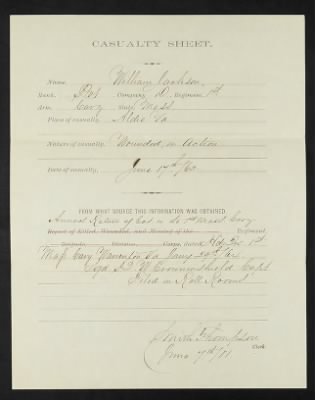 CASUALTY SHEET.
Name. William Jackson
Rank. Pvt Company, D. Regiment, 1st
Arm. Cavy State, Mass
Place of casualty, Aldie Va
Nature of casualty, Wounded in Action
Date of casualty, June 17th/63
FROM WHAT SOURCE THIS INFORMATION WAS OBTAINED.
Annual Return of Cas in 1st Mass Cavy
Report of Killed, Wounded, and Missing of the Regiment,
Brigade, Division, Corps, dated Hd. Qrs 1st
Mass Cavy Warrenton Va
Sgd Crowninshield Capt
Filed in Roll Room
Smith Thompson
Clerk.
June 7th/71